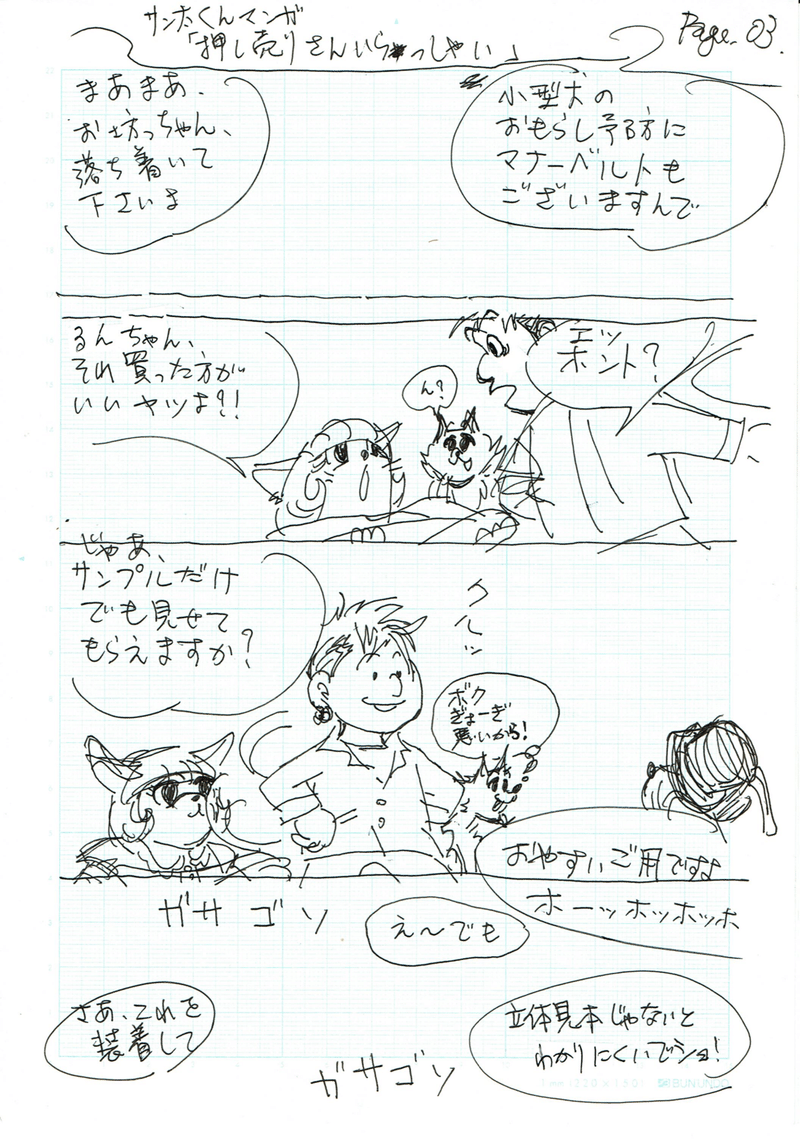 サンホくんマンガ
「押し売りさんいらっしゃい」
Page. 03.
小型犬の
おもらし予防に
マナーベルトも
ございますんで
まあまあ、
お坊っちゃん、
落ち着いて
下さいま
エッ
ホント?
ん?
るんちゃん、
それ買った方が
いいヤツよ?!
じゃあ、
サンプルだけ
でも見せて
もらえますか?
クルッ
ボク
ぎょーぎ
悪いから!
おやすいご用ですよ
ホーッホッホッホ
ガサゴソ
え〜でも
立体見本じゃないと
わかりにくいでショ!
さあ、これを
装着して
ガサゴソ
BUNUNDO